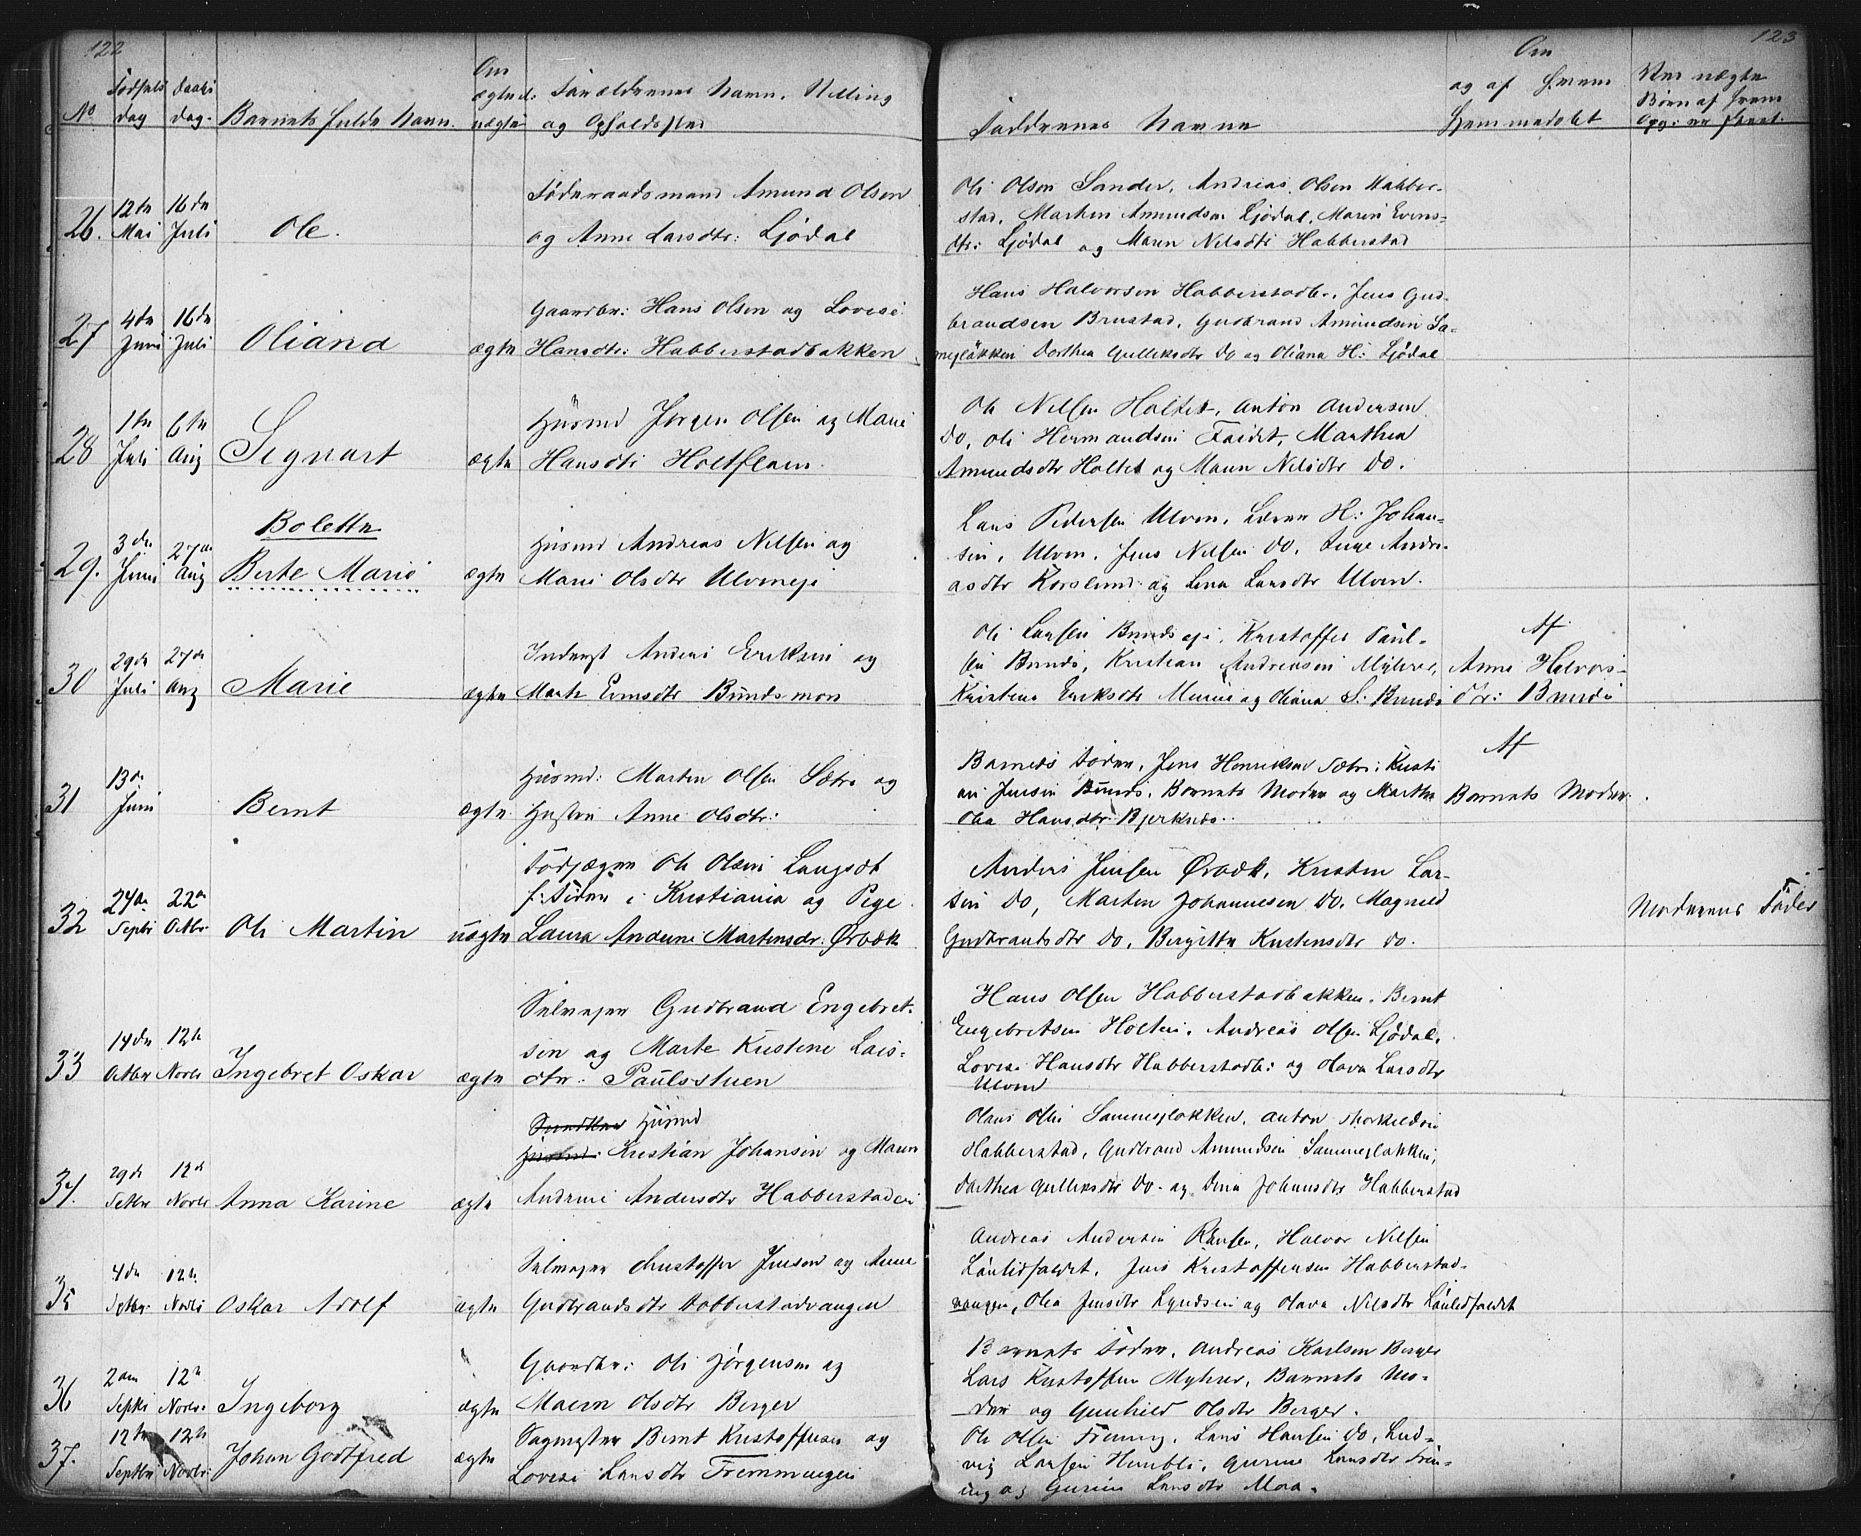 122
No
Fødsels dag
Daabs dag.
Barnets fulde Navn.
Om ægte el. uægte
Forældrenes Navn, Stilling
og Opholdssted
26.
12te Mai
16de Juli
Ole.
Føderaadsmand Amund Olsen
og Anne Larsdtr: Ljødal
27
4de Juni
16de Juli
Oliana
ægte
Gaardbr: Hans Olsen og Lovise
Hansdtr: Habberstadbakken
28
1te Juli
6te Aug
Segvart
ægte
Husmd Jørgen Olsen og Marie
Hansdtr Holtflaen.
29.
3de Juni
27de Aug
Bolette
Berte Marie
ægte
Husmd Andreas Nilsen og
Marie Olsdtr Ulvineje
30
29de Juli
27de Aug
Marie
ægte
Inderst Anders Eriksen og
Marte Evensdtr Bundsmoen
31
13de Juni
Bernt
ægte
Husmd: Martin Olsen Sætre og
Hustru Anne Olsdtr:
32
24de Septbr
22de Octbr.
Ole Martin
uægte
Ole Olsen Langset
f. Tiden i Kristiania og Pige
Laura Andrine Martinsdr: Ørbæk
33
14de Octbr
12te Novbr
Ingebret Oskar
ægte
Selvejer Gudbrand Engebret-
sen og Marte Kristine Lars-
dtr: Paulsstuen
34.
29de
12te Novbr
Anna Karine
ægte
Husmd
Husmd: Kristian Johansen og Maren
Andrine Andersdtr Habberstadeie
35
4de Septbr.
12te Novbr
Oskar Adolf
ægte
Selvejer Christoffer Jensen og Anne
Gudbrandsdtr Habberstadvangen
36
2den Septbr
12te Novbr.
Ingeborg
ægte
Gaardbr: Ole Jørgensen og
Maren Olsdtr Berger
37.
12te Septbr
12te Novbr.
Johan Godtfred
ægte
Sagmester Bernt Kristoffersen og
Lovise Larsdtr Fremmingen
123
Faddrenes Navne
Om
og af Hvem
Hjemmedøbt
Ved uægte
Børn af hvem
Opg: er skeet.
Ole Olsen Sander, Andreas Olsen Habber-
stad, Marthin Amundsen Ljødal, Maren Evens-
dtr: Ljødal og Maren Nilsdtr Habberstad
Hans Halvorsen Habberstadb., Jens Gud-
brandsen Brustad, Gudbrand Amundsen Sa-
mejløkken Dorthea Gulliksdtr Do og Oliana H: Ljødal
Ole Nilsen Holtet, Anton Andersen
Do, Ole Hermandsen Faldet, Marthea
Amundsdtr Holtet og Maren Nilsdtr Do.
Lars Pedersen Ulvin, H: Johan-
sen, Ulvin, Jens Nilsen Do, Inge Andre-
asdtr Korslund og Lina Larsdtr Ulvin.
Ole Larsen Bundseje, Kristoffer Paul-
sen Bundi, Kristian Andreasen Myhrer,
Kristine Eriksdtr og Oliana S: Bundi
Af
Anne Halvors-
dtr: Bundi
Barnets Fader, Jens Henriksen Sætre, Kristi
an Jensen Bundi, Barnets Moder og Marthe
Olea Hansdtr Bjerknes.
Af
Barnets Moder.
Anders Jensen Ørbæk, Kristen Lar-
sen Do, Martin Johannesen Do, Magnild
Gudbrandsdtr Do, Birgitte Kristensdtr Do.
Moderens Fader
Hans Olsen Habberstadbakken, Bernt
Engebretsen Holten, Andreas Olsen Ljødal,
Lovise Hansdtr Habberstadb: og Olava Larsdtr
Ulvin
Hans Olsen Sammejløkken, Anton Thorkildsen
Habberstad, Gudbrand Amundsen Sammejløkken,
Dorthea Gulliksdtr Do. og Dina Johansdtr Habberstad
Andreas Andersen, Halvor Nilsen
Laulidfaldet, Jens Kristoffersen Habberstad-
vangen, Olea Jensdtr og Olava Nilsdtr Laulidfaldet
Barnets Fader, Andreas Karlsen Berger
Lars Kristoffersen Myhrer, Barnets Mo-
der og Gunhild Olsdtr Berger.
Ole Olsen Freming, Lars Hansen Do, Lud-
vig Larsen Humble, Gurine Larsdtr Frem-
ing og Gurine Larsdtr Moa.